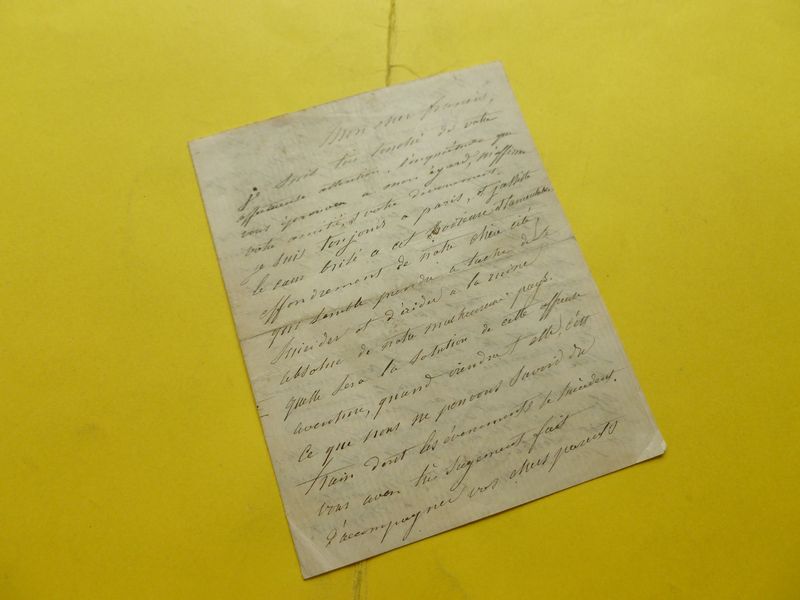 Mon cher Francis,
Je suis très touché de votre
affectueuse attention, l'inquiétude que
vous éprouvez a mon égard, m'affirme
votre amitié, et votre dévouement.
Je suis toujours a paris, et j'assiste
le cœur brisé a cet honteux et lamentable
effondrement de notre chère cité,
qui semble prendre a tache de se
suicider et d'aider a la ruine
absolue de notre malheureux pays.
quelle sera la solution de cette affreuse
aventure, quand viendra t elle, c'est
ce que nous ne pouvons savoir du
train dont les évènements se succèdent.
vous avez très sagement fait
d'accompagner vos chers parents